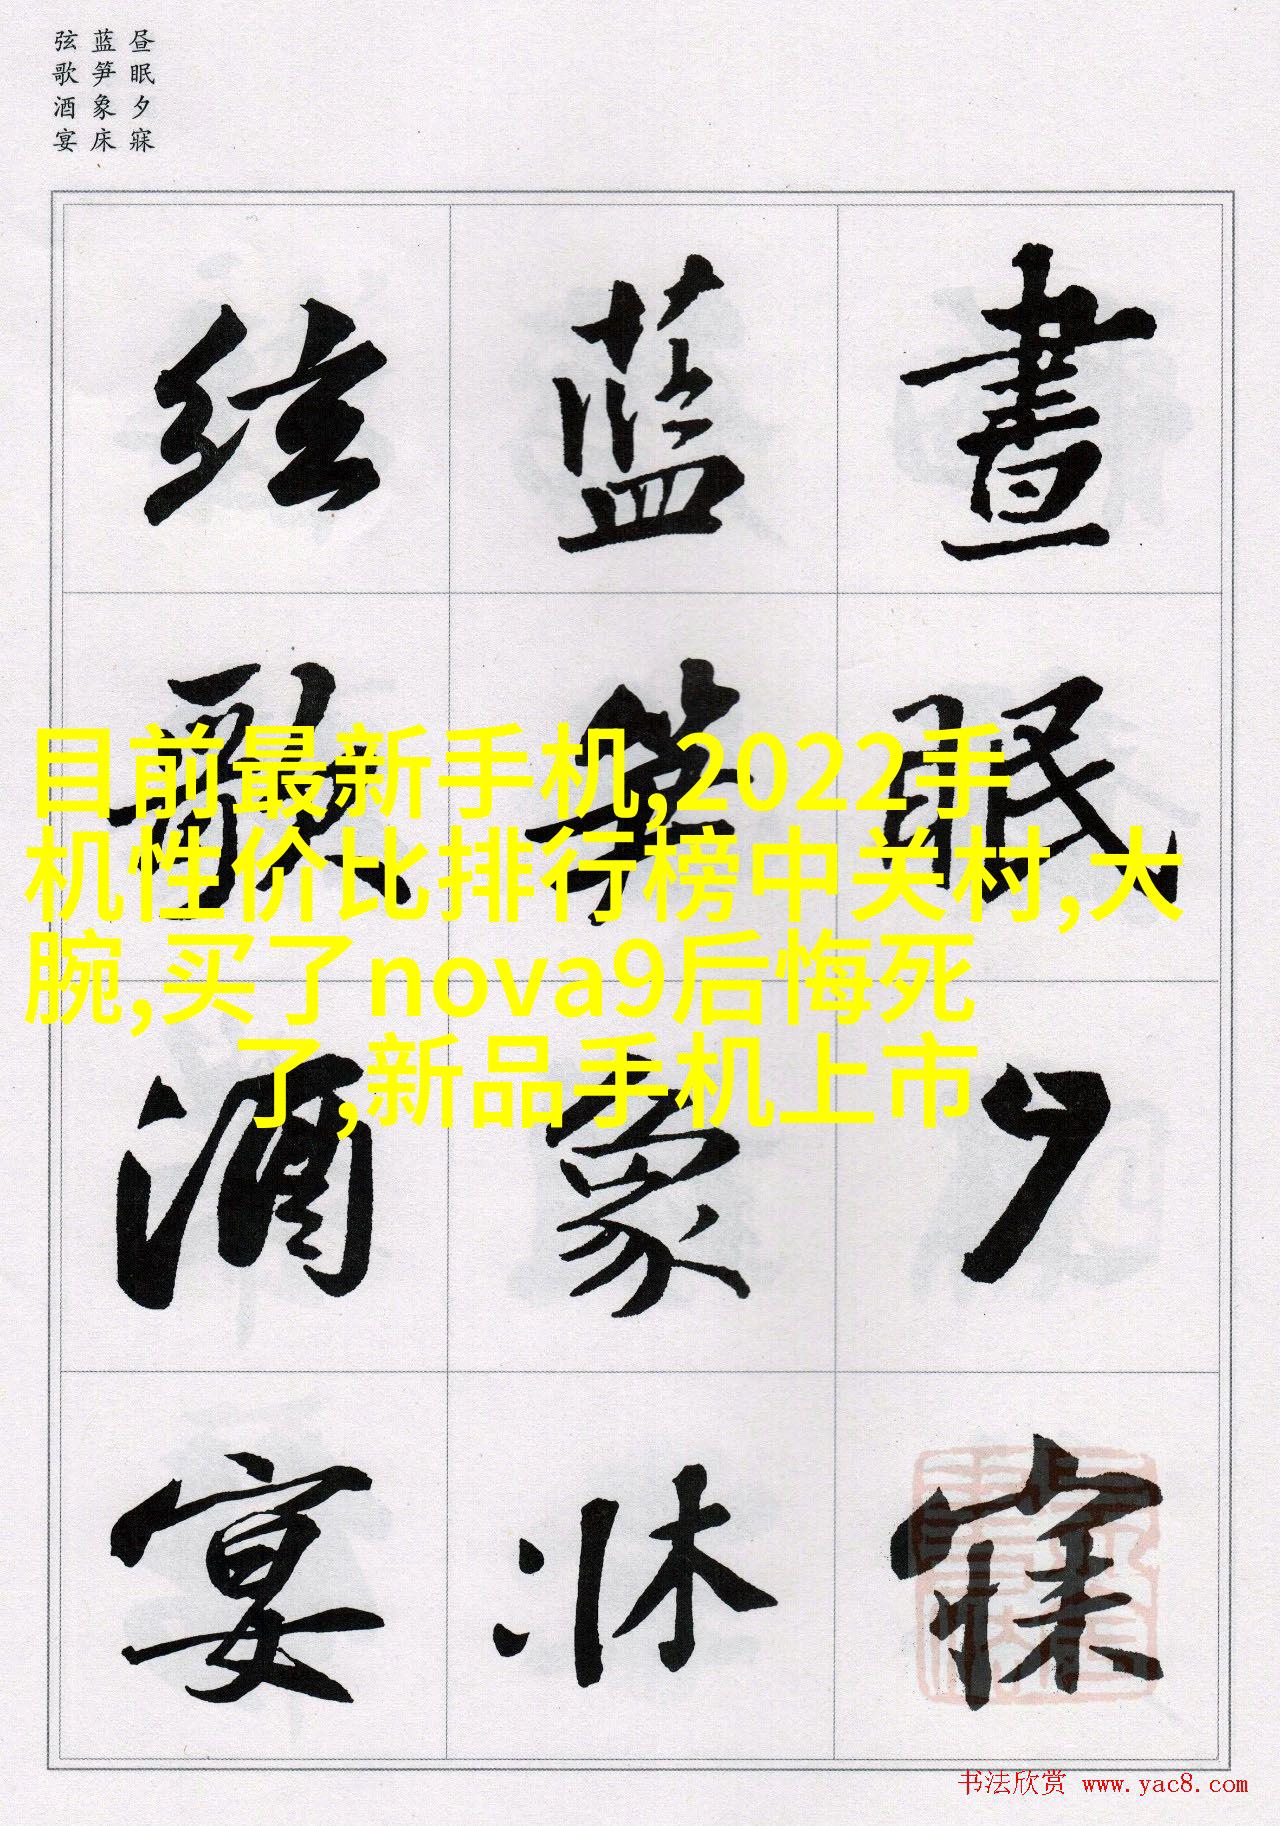 昼眠夕寐
蓝笋象床
弦歌酒宴
晝眠夕寐
蓝笋象床
弦歌酒宴
目前最新手机,2022手
机性价比排行榜中关村,大
腕,买了nova9后悔死
了,新品手机上市
书法欣赏 www.yac8.com